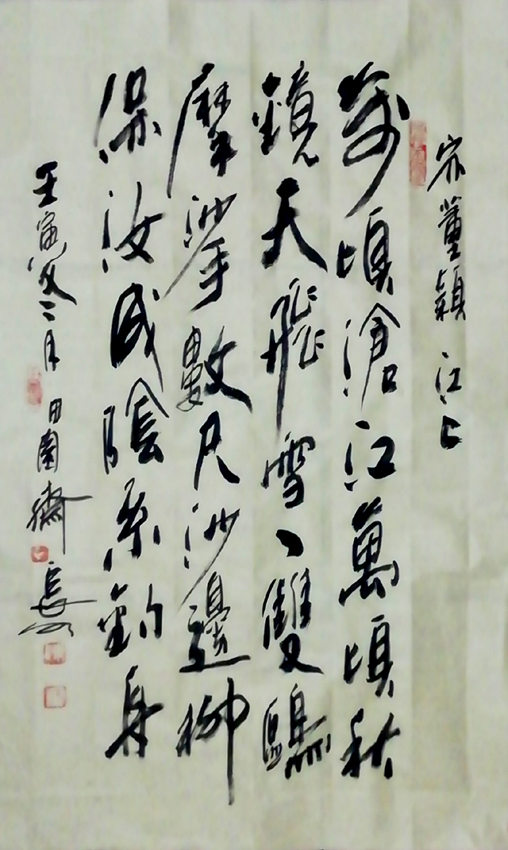 宋董穎 江上
萬頃滄江萬頃秋
鏡天飛雪一雙鷗
摩挲數尺沙邊柳
汝成陰系釣舟
壬寅 二月 田園齋